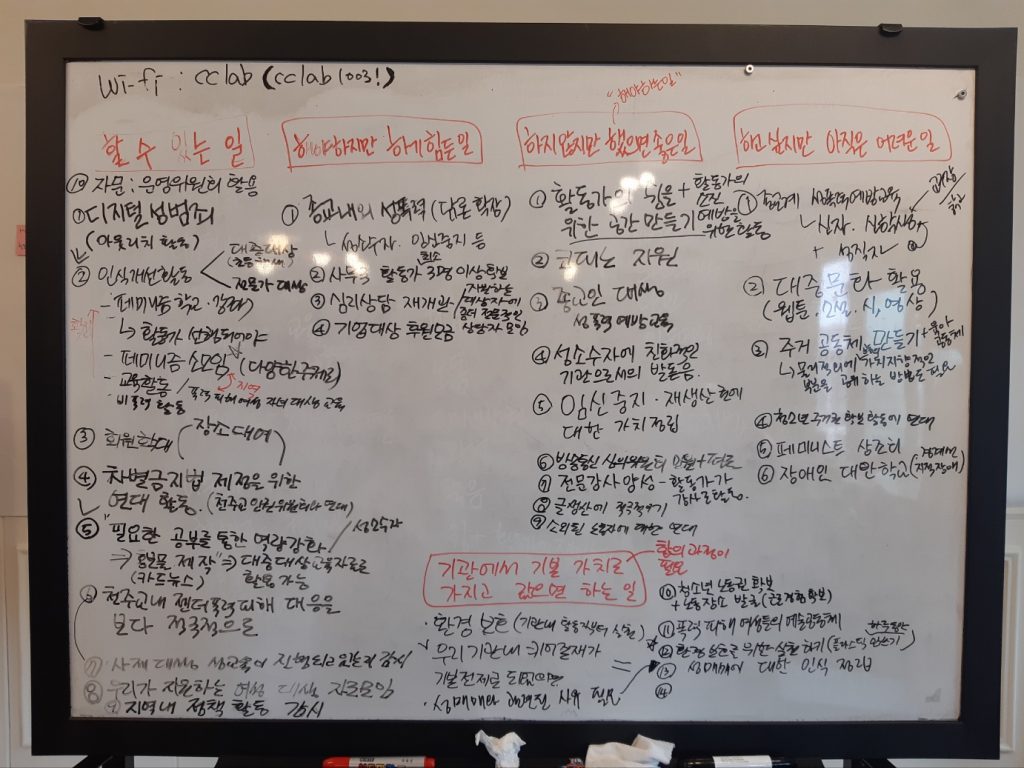 Wi-fi : cclab (cclab1003!)
할 수 있는 일
⑩ 자문 : 운영위원회 활용
① 디지털 성범죄
(아웃리치 활동)
② 인식개선활동
대중대상
전문가 대상
- 페미니즘 학교·강좌
↳ 활동가 선행되어야
- 페미니즘 소모임 (다양한 주제로)
지역
- 교육활동
비폭력 활동 / 폭력피해여성 자녀 대상 교육
③ 회원확대 (장소대여)
④ 차별금지법 제정을 위한
연대 활동. (천주교 인권위원회와 연대)
⑤ "필요한 공부를 통한 역량강화
성소수자
⇒ 답변물 제작" ⇒ 대중대상 교육자료로
(카드뉴스) 활용 가능
⑥ 천주교내 젠더폭력피해 대응을
보다 적극적으로
⑦ 사제 대상 성교육이 진행되고 있는지 감시
⑧ 우리가 지원하는 여성 대상 자료모임
⑨ 지역내 정책 활동 감시
해야하지만 하게 힘든 일
① 종교내의 성폭력 (담론 확장)
↳ 성소수자. 임신중지 등
최소
② 사무국 활동가 3명 이상 확보
③ 심리상담 재개관
지원하는
대상자에
상담자 모임
④ 기업대상 후원모금
"해야하는일"
하지 않지만 했으면 좋은 일
① 활동가의 쉼을 + 활동가의
소진
위한 공간 만들기 예방을
위한 활동
② 코다는 자원
③ 종교인 대상
성폭력 예방교육
④ 성소수자에 친화적인
기관으로서의 발돋음.
⑤ 임신중지·재생산권에
대한 가치정립
⑥ 방송통신 심의위원회
⑦ 전문강사 양성 - 활동가가
강사로 활동.
⑧ 글쓰기
⑨ 소외된 대한 연대
하고 싶지만 아직은 어려운 일
① 종교계 성폭력예방교육
↳ 신자. 신학생
+ 성직자
② 대중문화 활용
(웹툰, 소설, 시, 영상)
③ 주거 공동체 만들기 + 육아
공동체
↳ 물리적외에 가치지향적인
복음을 공개하는 방법도 필요
④ 청소년 주거권 확보 활동에 연대
⑤ 페미니스트 상조회
⑥ 장애인 대안학교 (경계선
지적장애)
기관에서 기본 가치로
가지고 갔으면 하는 일
합의 과정이
필요
· 환경 보호 (기관내 활동에서 실천)
· 우리기관내 퀴어의제가
기본전제로 되었으면
· 성매매와 해결된 사유 필요
⑩ 청소년 노동권 확보
+ 노동장소 발굴
⑪ 폭력 피해 여성들의 예술공동체
⑫ 환경 보호를 위한 실천하기 (플라스틱 안쓰기)
⑬ 성매매에 대한 인식 정리
⑭